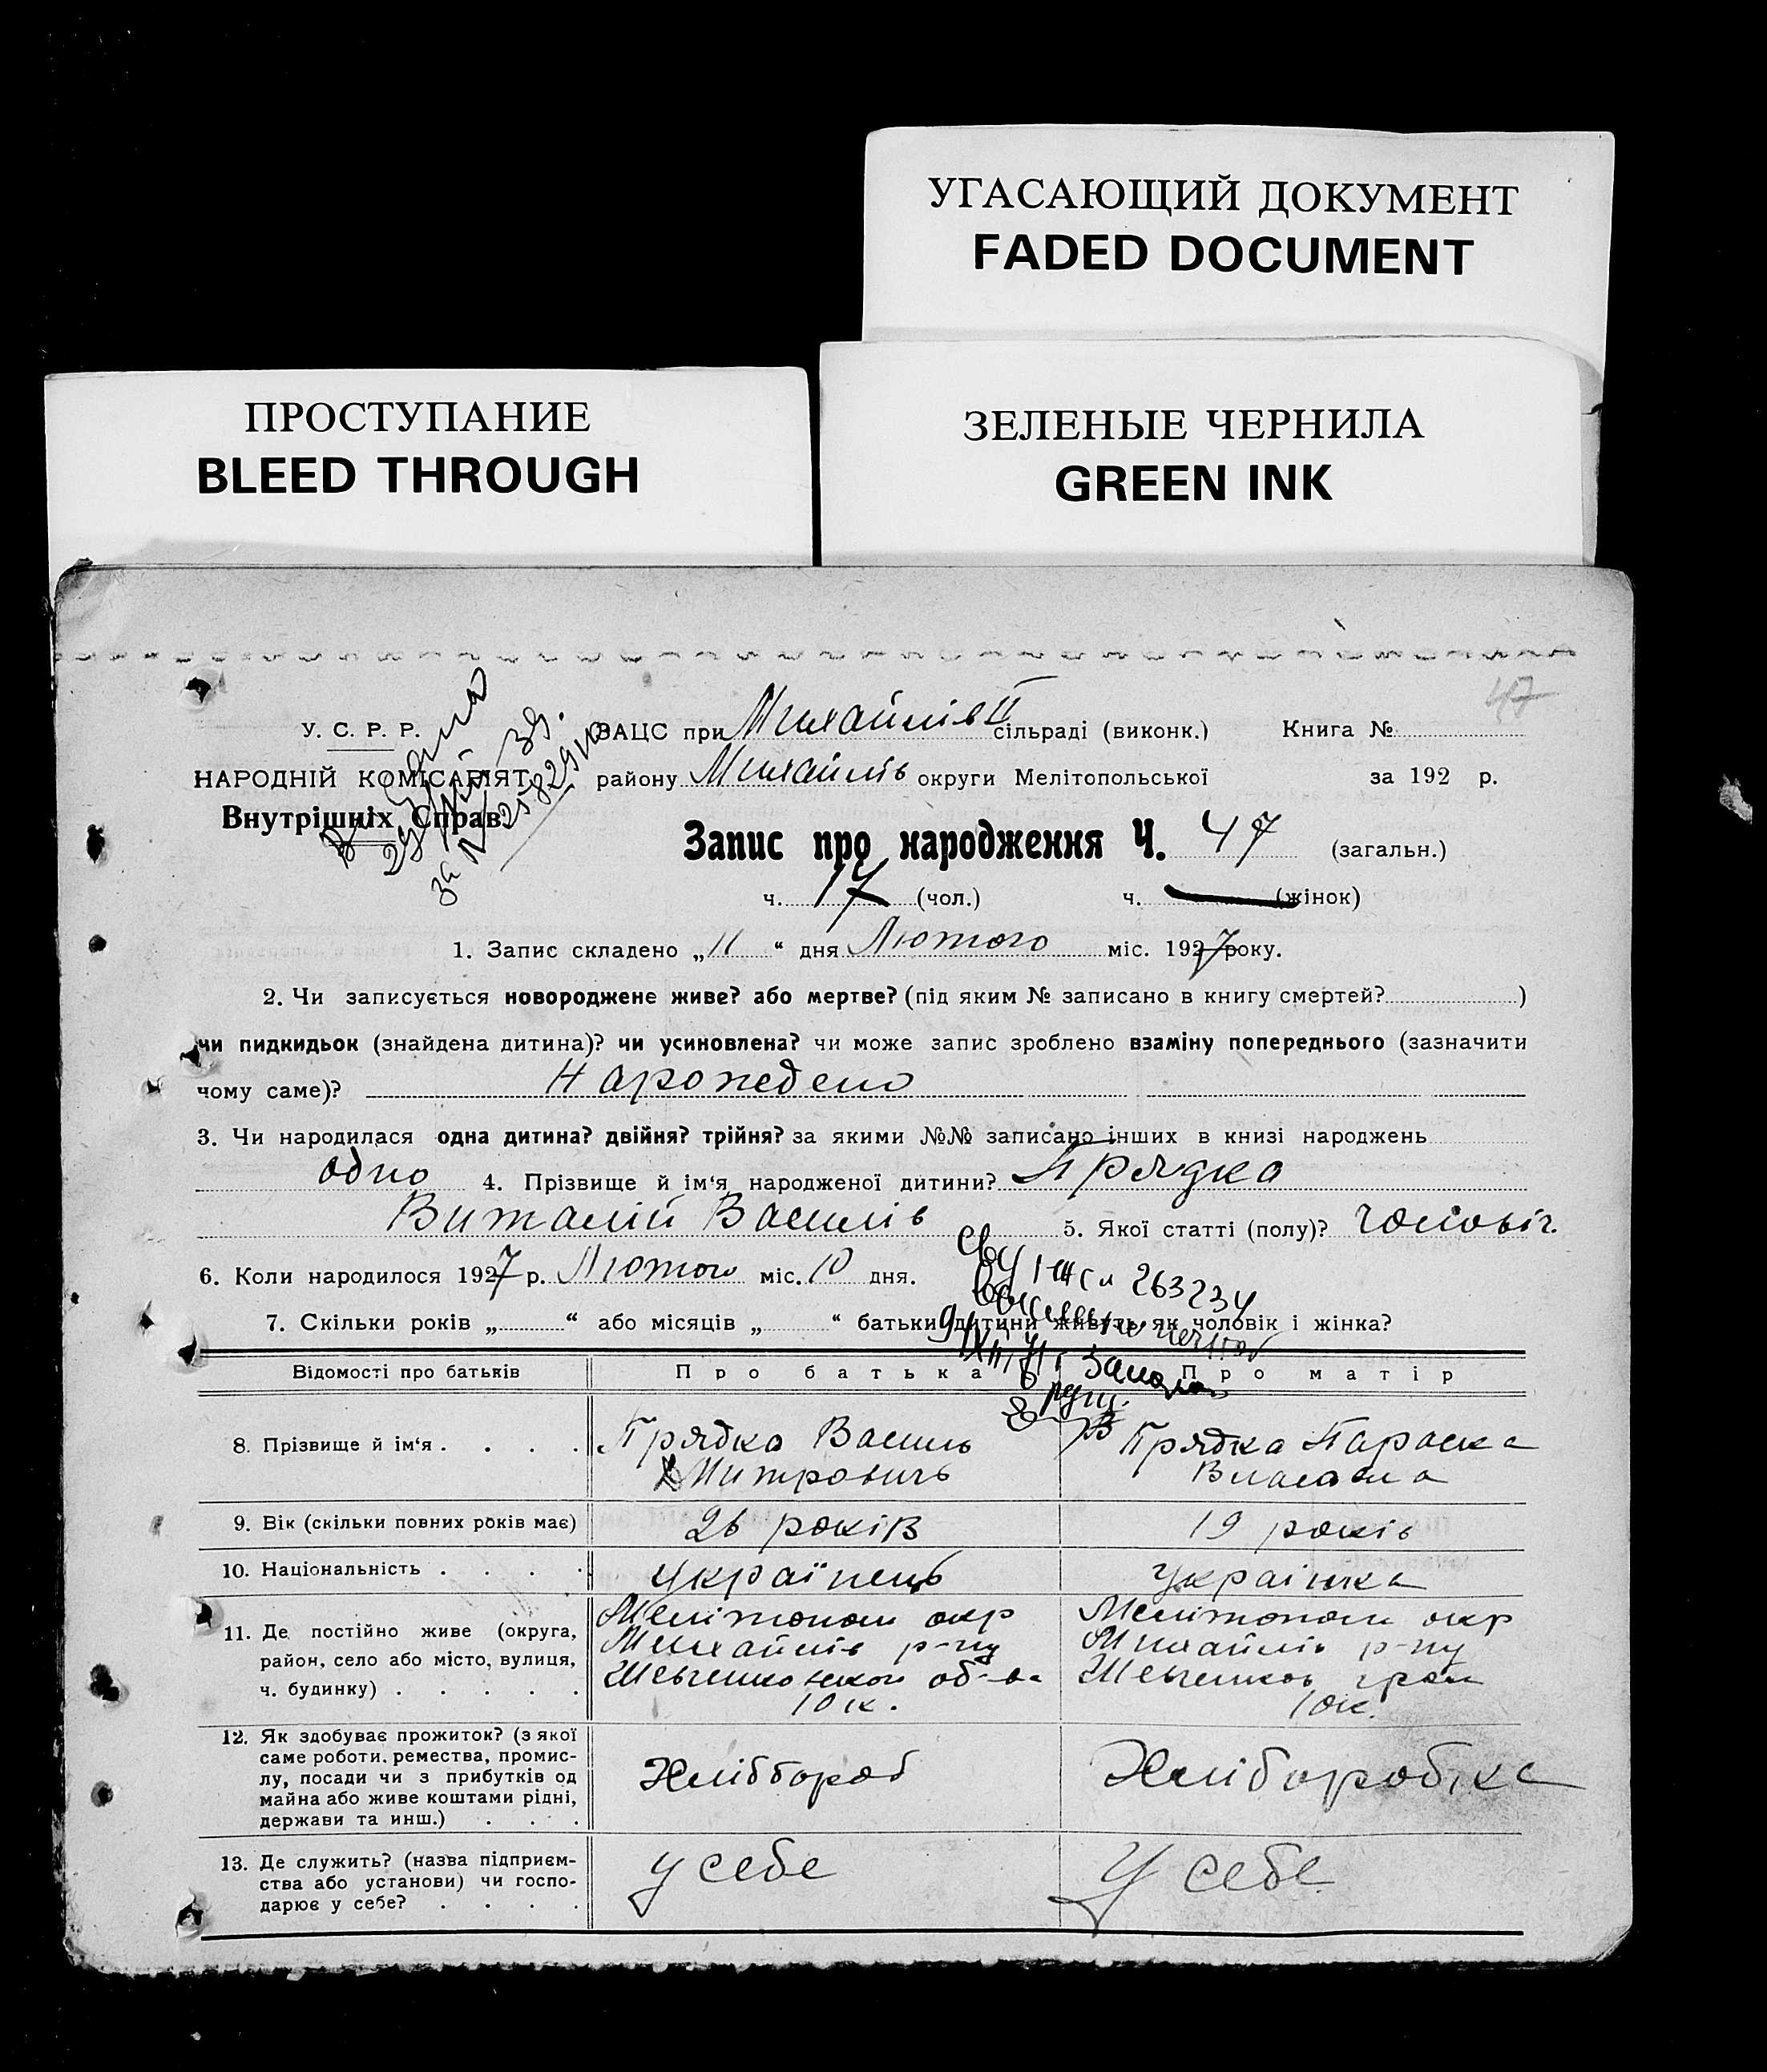 УГАСАЮЩИЙ ДОКУМЕНТ
FADED DOCUMENT
ПРОСТУПАНИЕ
BLEED THROUGH
ЗЕЛЕНЫЕ ЧЕРНИЛА
GREEN INK
47
У. С. Р. Р.
НАРОДНІЙ КОМІСАРІЯТ
Внутрішніх Справ.
ЗАЦС при Михайлів II сільраді (виконк.) Книга №
району Михайлів округи Мелітопольської за 192 р.
Запис про народження Ч. 47 (загальн.)
ч. 17 (чол.) ч. (жінок)
1. Запис складено „11“ дня Лютого міс. 1927 року.
2. Чи записується новороджене живе? або мертве? (під яким № записано в книгу смертей? )
чи пидкидьок (знайдена дитина)? чи усиновлена? чи може запис зроблено взаміну попереднього (зазначити
чому саме)? Нарожедено
3. Чи народилася одна дитина? двійня? трійня? за якими №№ записано інших в книзі народжень
одно 4. Прізвище й ім‘я народженої дитини? Прядка
Виталій Василів 5. Якої статті (полу)? чоловіч.
6. Коли народилося 1927 р. Лютого міс. 10 дня.
263234
7. Скільки років „ “ або місяців „ “ батьки дитини живуть як чоловік і жінка?
Відомості про батьків Про батька Про матір
8. Прізвище й ім‘я . . . . Прядка Василь Прядка Параска
Митровичь Власовна
9. Вік (скільки повних років має) 26 років 19 років
10. Національність . . . . Українець Українка
11. Де постійно живе (округа, район, село або місто, вулиця, ч. будинку) . . . . .
Мелітопол окр Мелітопол окр
Михайлів р-ну Михайлів р-ну
Шевченковськои Шевченков
10 к. 10 к.
12. Як здобуває прожиток? (з якої
саме роботи, ремества, промис-
лу, посади чи з прибутків од
майна або живе коштами рідні,
держави та инш.) . . .
Хлібороб Хліборобка
13. Де служить? (назва підприєм-
ства або установи) чи госпо-
дарює у себе? . . . .
у себе У себе